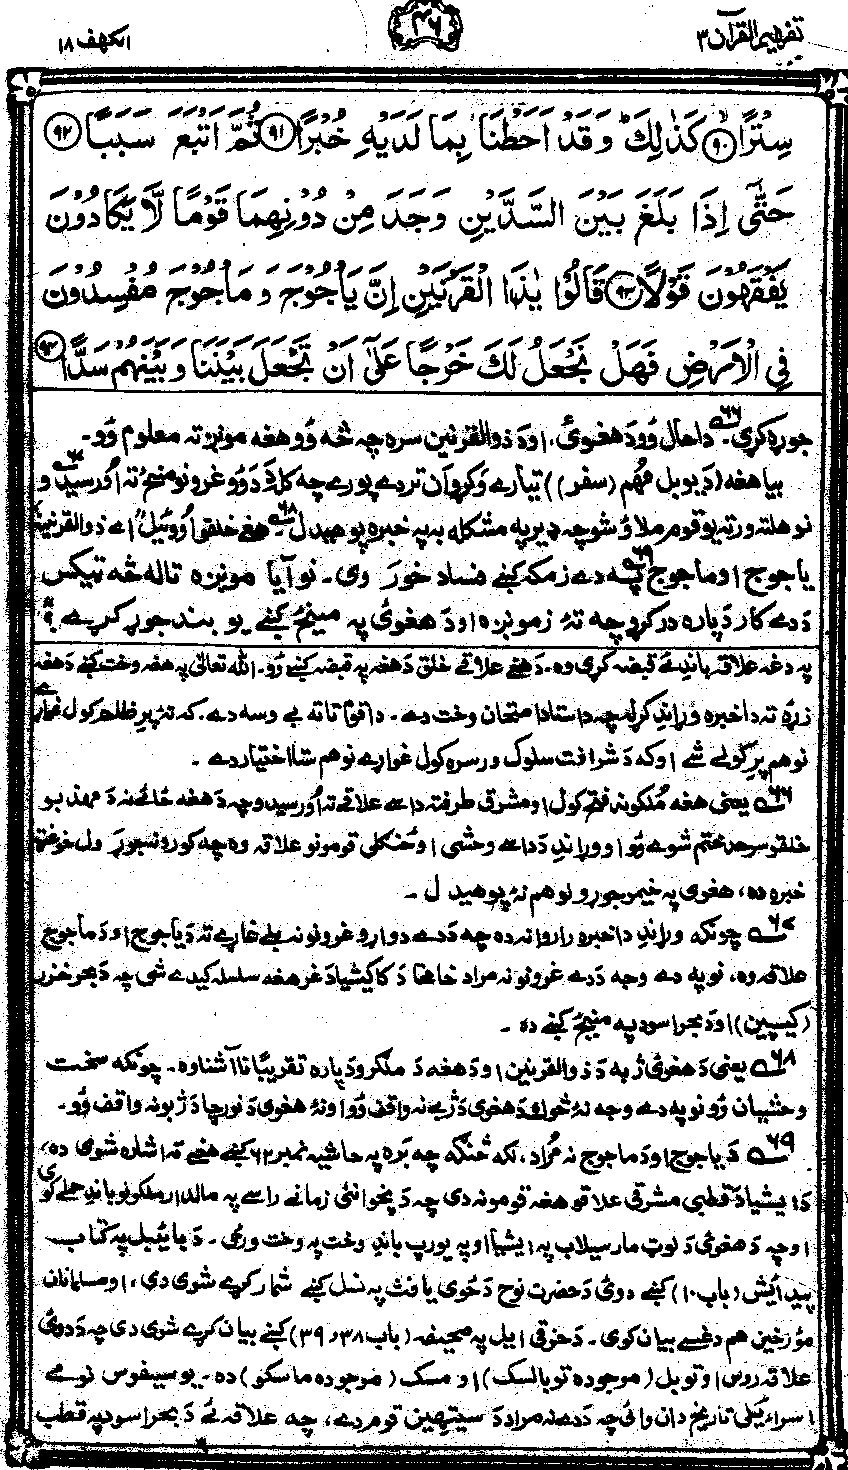 تفهیم القرآن ۳
۴۶
الکهف ۱۸
سِتْرًا ۹۰ كَذٰلِكَ ؕ وَقَدْ اَحَطْنَا بِمَا لَدَيْهِ خُبْرًا ۹۱ ثُمَّ اَتْبَعَ سَبَبًا ۹۲
حَتّٰى اِذَا بَلَغَ بَيْنَ السَّدَّيْنِ وَجَدَ مِنْ دُوْنِهِمَا قَوْمًا لَّا يَكَادُوْنَ
يَفْقَهُوْنَ قَوْلًا ۹۳ قَالُوْا يٰذَا الْقَرْنَيْنِ اِنَّ يَاْجُوْجَ وَمَاْجُوْجَ مُفْسِدُوْنَ
فِي الْاَرْضِ فَهَلْ نَجْعَلُ لَكَ خَرْجًا عَلٰٓى اَنْ تَجْعَلَ بَيْنَنَا وَبَيْنَهُمْ سَدًّا ۹۴
جوړه کړی۔ ۶۶ دا حال وُو دَ هغوئ، اودَ ذوالقرنین سره چه څه وُو هغه مونږ ته معلوم وُو۔
بیا هغه (دَ یو بل مُهم (سفر)) تیارے وَکړو ان تردے پورے چه کله دَ دَوو غرونو منځ ته اُورسیدو ۶۷
نو هلته ورته یو قوم ملاؤ شو چه ډیر په مشکله به په خبره پوهیدل ۶۸۔ هغے خلقو اُووئیل "اے ذوالقرنینه
یاجوج اوماجوج ۶۹ په دے زمکه کښے فساد خورَوی۔ نو آیا مونږه تاله څه ټیکس
دَ دے کار دَپاره درکړو چه تهٔ زمونږه اودَ هغوئ په مینځ کښے یو بند جوړ کړے؟"
په دغه علاقه باندے قبضه کړی وه۔ دَ هغے علاقے خلق دَ هغه په قبضه کښے وُو۔ الله تعالیٰ په هغه وخت کښے دَ هغه
زړهٔ ته دا خبره وړاندے کړله چه دا ستا دا متحان وخت دے۔ دا قوم تا ته بے وسه دے۔ که تهٔ پرے ظلم کول غواړے
نو هم پرے کولے شے او که دَ شرافت سلوک ورسره کول غواړے نو هم ستا اختیار دے۔
۶۶ یعنی هغه مُلکونه فتح کول او مشرقی طرف ته داسے علاقے ته اُورسیدو چه دَ هغه ځائے نه دَ مهذبو
خلقو سرحد ختم شوے وُو او وړاندے دَ داسے وحشی او ځنګلی قومونو علاقه وه چه کورونه جوړَول خو غټه
خبره ده، هغوی په خیمو جوړولو هم نهٔ پوهیدل۔
۶۷ چونکه وړاندے دا خبره راروانه ده چه دَدے دواړو غرونو نه بلے غاړے ته دَ یاجوج اودَ ماجوج
علاقه وه، نو په دے وجه دَدے غرونو نه مراد خامخا دَ کاکیشیا دَ غر هغه سلسله کیدے شی چه دَ بحر خزر
(کیسپین) اودَ بحر اسود په مینځ کښے ده۔
۶۸ یعنی دَ هغوئ ژبه دَ ذوالقرنین اودَ هغه دَ ملګرو دَپاره تقریباً نا آشنا وه۔ چونکه سخت
وحشیان وُو نو په دے وجه نهٔ څوک دَ هغوی دَ ژبے نه واقف وُو او نهٔ هغوی دَ نورو چا دَ ژبو نه واقف وُو۔
۶۹ دَ یاجوج اودَ ماجوج نه مُراد، لکه څنګه چه بَره په حاشیه نمبر ۶۲ کښے هغے ته اشاره شوی ده،
دَ ایشیا دَ قطبی مشرقی علاقو هغه قومونه دی چه دَ پخوانئی زمانے راسے په مالدار ملکونو باندے حملے کوی
او چه دَ هغوئ دَ لوټ مار سیلاب په ایشیا او په یورپ باندے وخت په وخت ورځی۔ دَ بائیبل په کتاب
پیدائیش (باب ۱۰) کښے دوئ دَ حضرت نوح دَ ځوی یافث په نسل کښے شمار کړے شوی دی، او مسلمانان
مؤرخین هم دغسے بیان کوی۔ دَ حزقی ایل په صحیفه (باب ۳۸، ۳۹) کښے بیان کړے شوی دی چه دَ دوئ
علاقه روس او توبل (موجوده توبالسک) او مسک (موجوده ماسکو) ده۔ یوسیفوس نومے
اسرائیلی تاریخ دان وائی چه دَدے نه مراد دَ سیتهین قوم دے، چه علاقه ئے دَ بحر اسود په قطب